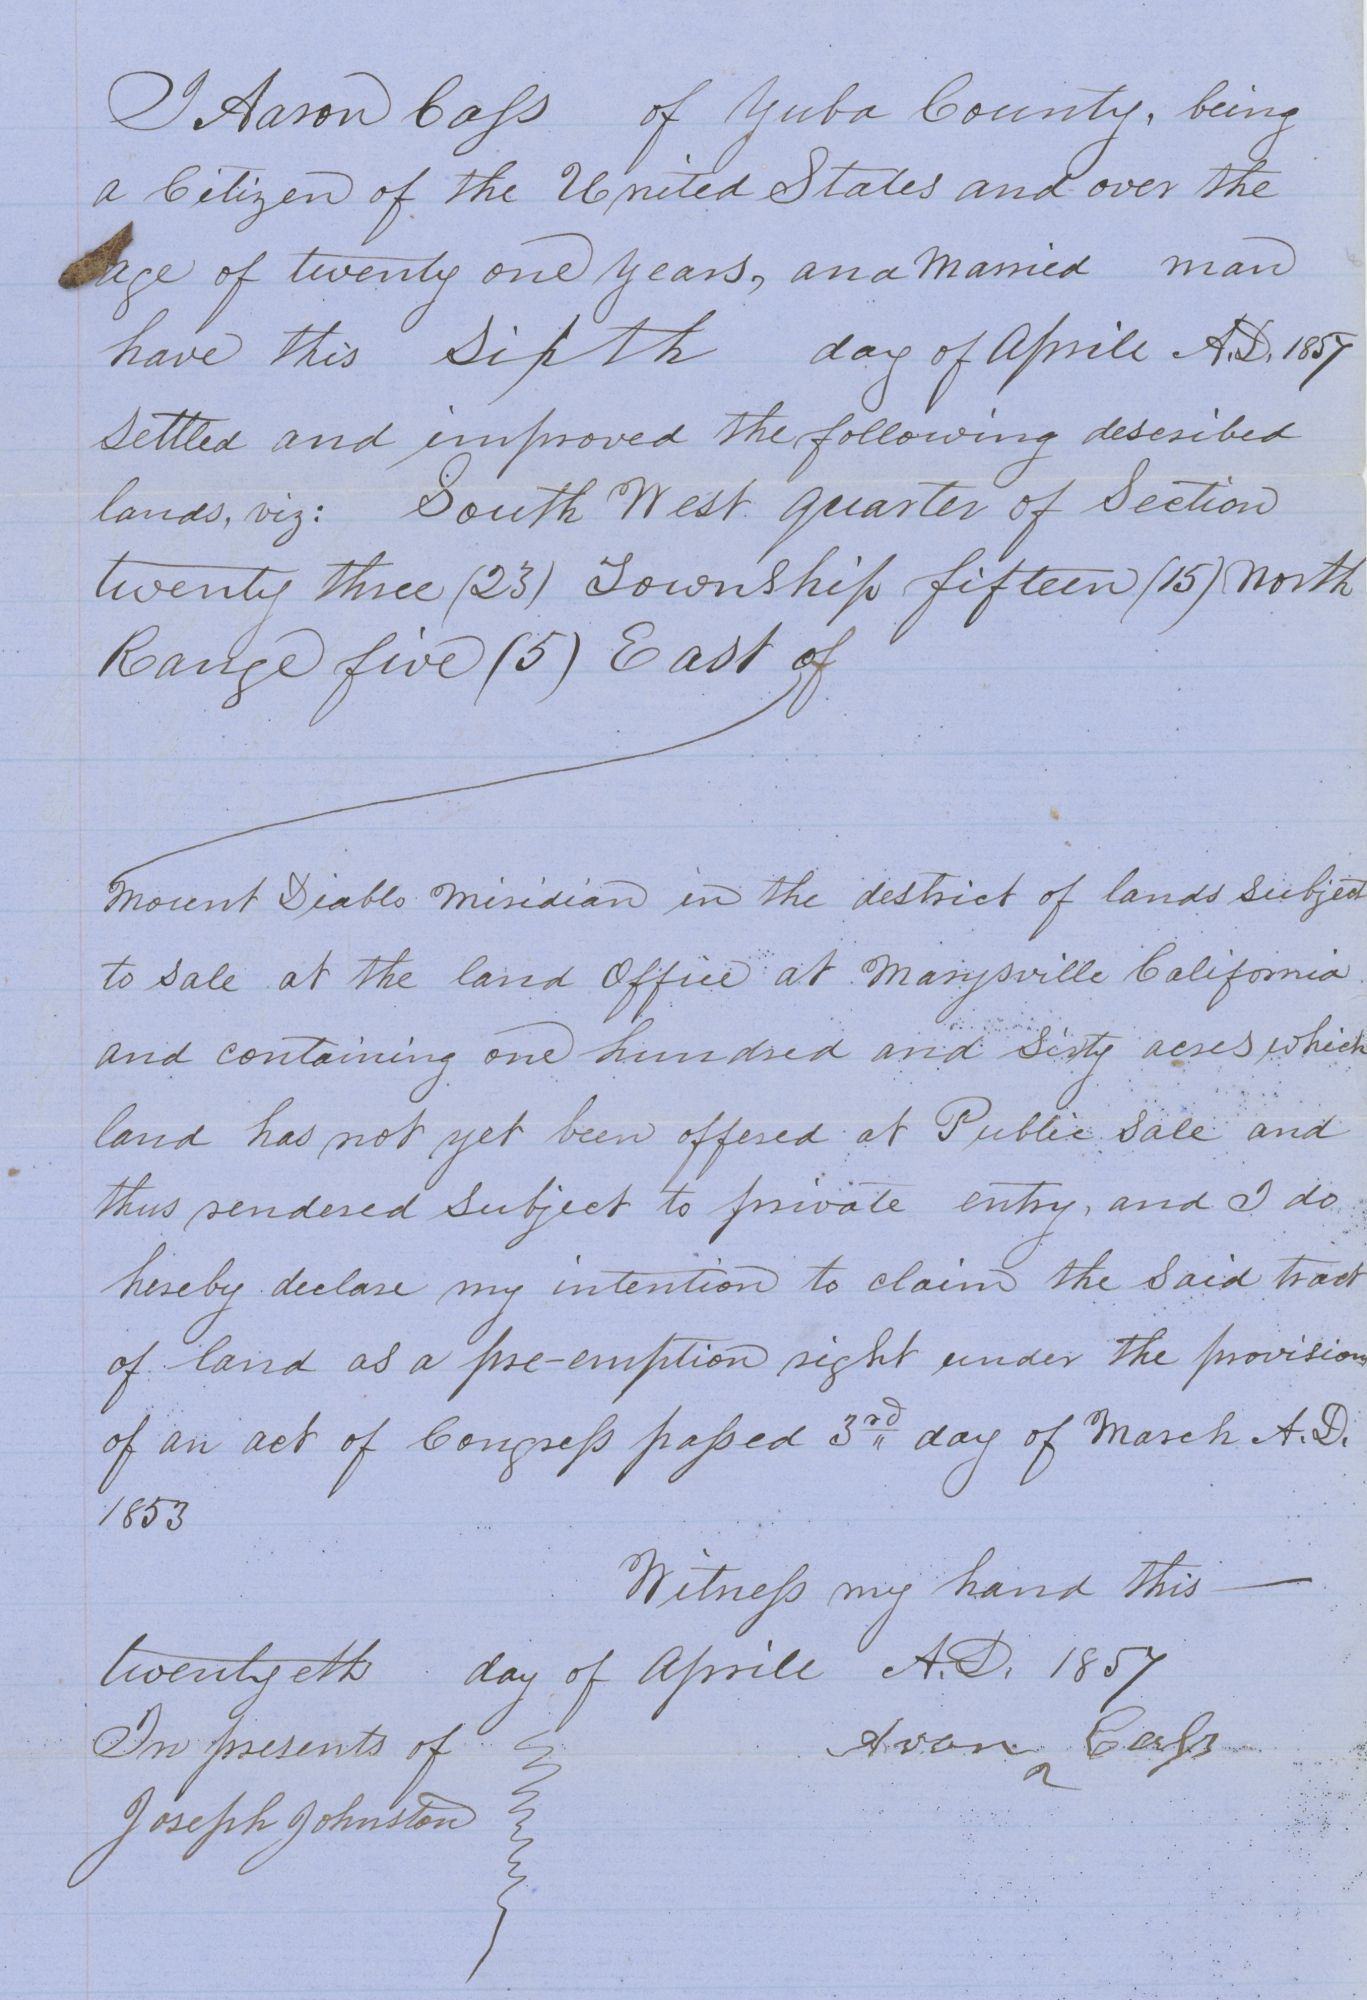 I Aaron Cass of Yuba County, being
a Citizen of the United States and over the
age of twenty one years, and Married man
have this Sixth day of Aprile A.D. 1857
Settled and improved the following described
lands, viz: South West quarter of Section
twenty three (23) Township fifteen (15) North
Range five (5) East of
Mount Diablo Miridian in the destrict of lands Subject
to Sale at the land Office at Marysville California
and containing one hundred and Sixty acres which
land has not yet been offered at Public Sale and
thus rendered Subject to private entry, and I do
hereby declare my intention to claim the Said tract
of land as a pre-emption right under the provisions
of an act of Congress passed 3rd day of March A.D.
1853
Witness my hand this —
twentyeth day of Aprile A.D. 1857
In presents of Aron Cass
Joseph Johnston